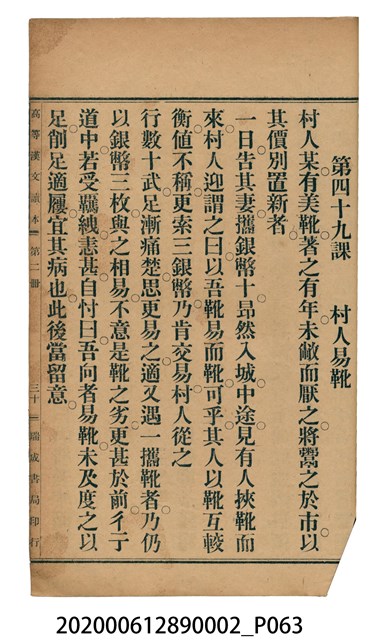 第四十九課　村人易靴
村人某有美靴著之有年未敝而厭之將鬻之於市以
其價別置新者
一日告其妻攜銀幣十昂然入城中途見有人挾靴而
來村人迎謂之曰以吾靴易而靴可乎其人以靴互較
衡值不稱更索三銀幣乃肯交易村人從之
行數十武足漸痛楚思更易之適又遇一攜靴者乃仍
以銀幣三枚與之相易不意是靴之劣更甚於前彳亍
道中若受羈紲恚甚自忖曰吾向者易靴未及度之以
足削足適屨宜其病也此後當留意
高等漢文讀本　第二冊　三十　瑞成書局印行
202000612890002_P063